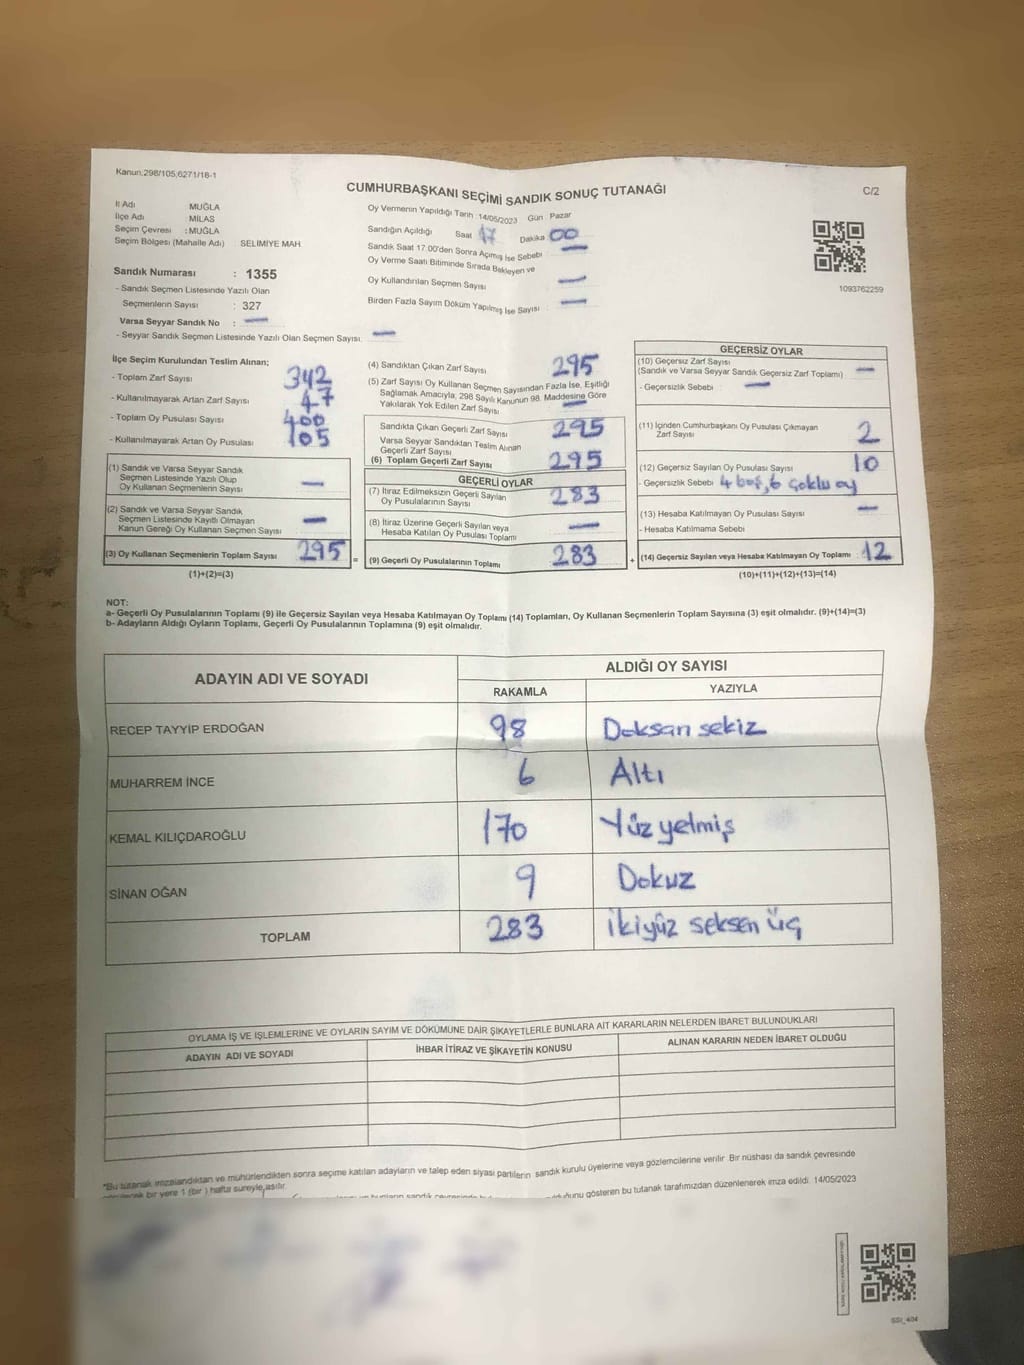 Kanun,298/105,6271/18-1
CUMHURBAŞKANI SEÇİMİ SANDIK SONUÇ TUTANAĞI
C/2
İl Adı MUĞLA
İlçe Adı : MİLAS
Seçim Çevresi : MUĞLA
Seçim Bölgesi (Mahalle Adı) SELİMİYE MAH
Sandık Numarası : 1355
- Sandık Seçmen Listesinde Yazılı Olan
Seçmenlerin Sayısı : 327
Varsa Seyyar Sandık No : —
- Seyyar Sandık Seçmen Listesinde Yazılı Olan Seçmen Sayısı: —
Oy Vermenin Yapıldığı Tarih :14/05/2023 Gün : Pazar
Sandığın Açıldığı Saat 17 Dakika 00
Sandık Saat 17.00'den Sonra Açımış İse Sebebi —
Oy Verme Saati Bitiminde Sırada Bekleyen ve
Oy Kullandırılan Seçmen Sayısı —
Birden Fazla Sayım Döküm Yapılmış İse Sayısı : —
1093762259
İlçe Seçim Kurulundan Teslim Alınan;
- Toplam Zarf Sayısı 342
- Kullanılmayarak Artan Zarf Sayısı 47
- Toplam Oy Pusulası Sayısı 400
- Kullanılmayarak Artan Oy Pusulası 105
(1) Sandık ve Varsa Seyyar Sandık
Seçmen Listesinde Yazılı Olup
Oy Kullanan Seçmenlerin Sayısı —
(2) Sandık ve Varsa Seyyar Sandık
Seçmen Listesinde Kayıtlı Olmayan
Kanun Gereği Oy Kullanan Seçmen Sayısı —
(3) Oy Kullanan Seçmenlerin Toplam Sayısı 295 =
(1)+(2)=(3)
(4) Sandıktan Çıkan Zarf Sayısı 295
(5) Zarf Sayısı Oy Kullanan Seçmen Sayısından Fazla İse, Eşitliği
Sağlamak Amacıyla; 298 Sayılı Kanunun 98. Maddesine Göre
Yakılarak Yok Edilen Zarf Sayısı —
Sandıkta Çıkan Geçerli Zarf Sayısı 295
Varsa Seyyar Sandıktan Teslim Alınan
Geçerli Zarf Sayısı
(6) Toplam Geçerli Zarf Sayısı 295
GEÇERLİ OYLAR
(7) İtiraz Edilmeksizin Geçerli Sayılan
Oy Pusulalarının Sayısı 283
(8) İtiraz Üzerine Geçerli Sayılan veya
Hesaba Katılan Oy Pusulası Toplamı —
(9) Geçerli Oy Pusulalarının Toplamı 283 +
GEÇERSİZ OYLAR
(10) Geçersiz Zarf Sayısı
(Sandık ve Varsa Seyyar Sandık Geçersiz Zarf Toplamı) —
- Geçersizlik Sebebi : —
(11) İçinden Cumhurbaşkanı Oy Pusulası Çıkmayan
Zarf Sayısı 2
(12) Geçersiz Sayılan Oy Pusulası Sayısı 10
- Geçersizlik Sebebi 4 boş, 6 çoklu oy
(13) Hesaba Katılmayan Oy Pusulası Sayısı —
- Hesaba Katılmama Sebebi
(14) Geçersiz Sayılan veya Hesaba Katılmayan Oy Toplamı : 12
(10)+(11)+(12)+(13)=(14)
NOT:
a- Geçerli Oy Pusulalarının Toplamı (9) ile Geçersiz Sayılan veya Hesaba Katılmayan Oy Toplamı (14) Toplamları, Oy Kullanan Seçmenlerin Toplam Sayısına (3) eşit olmalıdır. (9)+(14)=(3)
b- Adayların Aldığı Oyların Toplamı, Geçerli Oy Pusulalarının Toplamına (9) eşit olmalıdır.
ADAYIN ADI VE SOYADI ALDIĞI OY SAYISI
RAKAMLA YAZIYLA
RECEP TAYYİP ERDOĞAN 98 Doksan sekiz
MUHARREM İNCE 6 Altı
KEMAL KILIÇDAROĞLU 170 Yüz yetmiş
SİNAN OĞAN 9 Dokuz
TOPLAM 283 İkiyüz seksen üç
OYLAMA İŞ VE İŞLEMLERİNE VE OYLARIN SAYIM VE DÖKÜMÜNE DAİR ŞİKAYETLERLE BUNLARA AİT KARARLARIN NELERDEN İBARET BULUNDUKLARI
ADAYIN ADI VE SOYADI İHBAR İTİRAZ VE ŞİKAYETİN KONUSU ALINAN KARARIN NEDEN İBARET OLDUĞU
*Bu tutanak imzalandıktan ve mühürlendikten sonra seçime katılan adayların ve talep eden siyasi partilerin sandık kurulu üyelerine veya gözlemcilerine verilir. Bir nüshası da sandık çevresinde
bir yere 1 (bir ) hafta süreyle asılır.
gösteren bu tutanak tarafımızdan düzenlenerek imza edildi. 14/05/2023